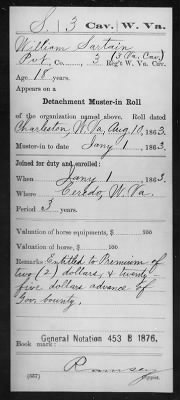 S. | 3 | Cav. | W. Va.
William Sartain
Pvt, Co. , 3 (3 Va. Cav.) Reg't W. Va. Cav.
Age 18 years.
Appears on a
Detachment Muster-in Roll
of the organization named above. Roll dated
Charleston, W. Va, Aug 10, 1863.
Muster-in to date Jany 1 , 1863.
Joined for duty and enrolled:
When Jany 1 , 1863.
Where Ceredo, W. Va.
Period 3 years.
Valuation of horse equipments, $ 100
Valuation of horse, $ 100
Remarks: Entitled to Premium of
two (2) dollars, & twenty
five dollars advance of
Gov. bounty.
General Notation 453 B 1876.
Book mark:
Ramsey
(337) Copyist.